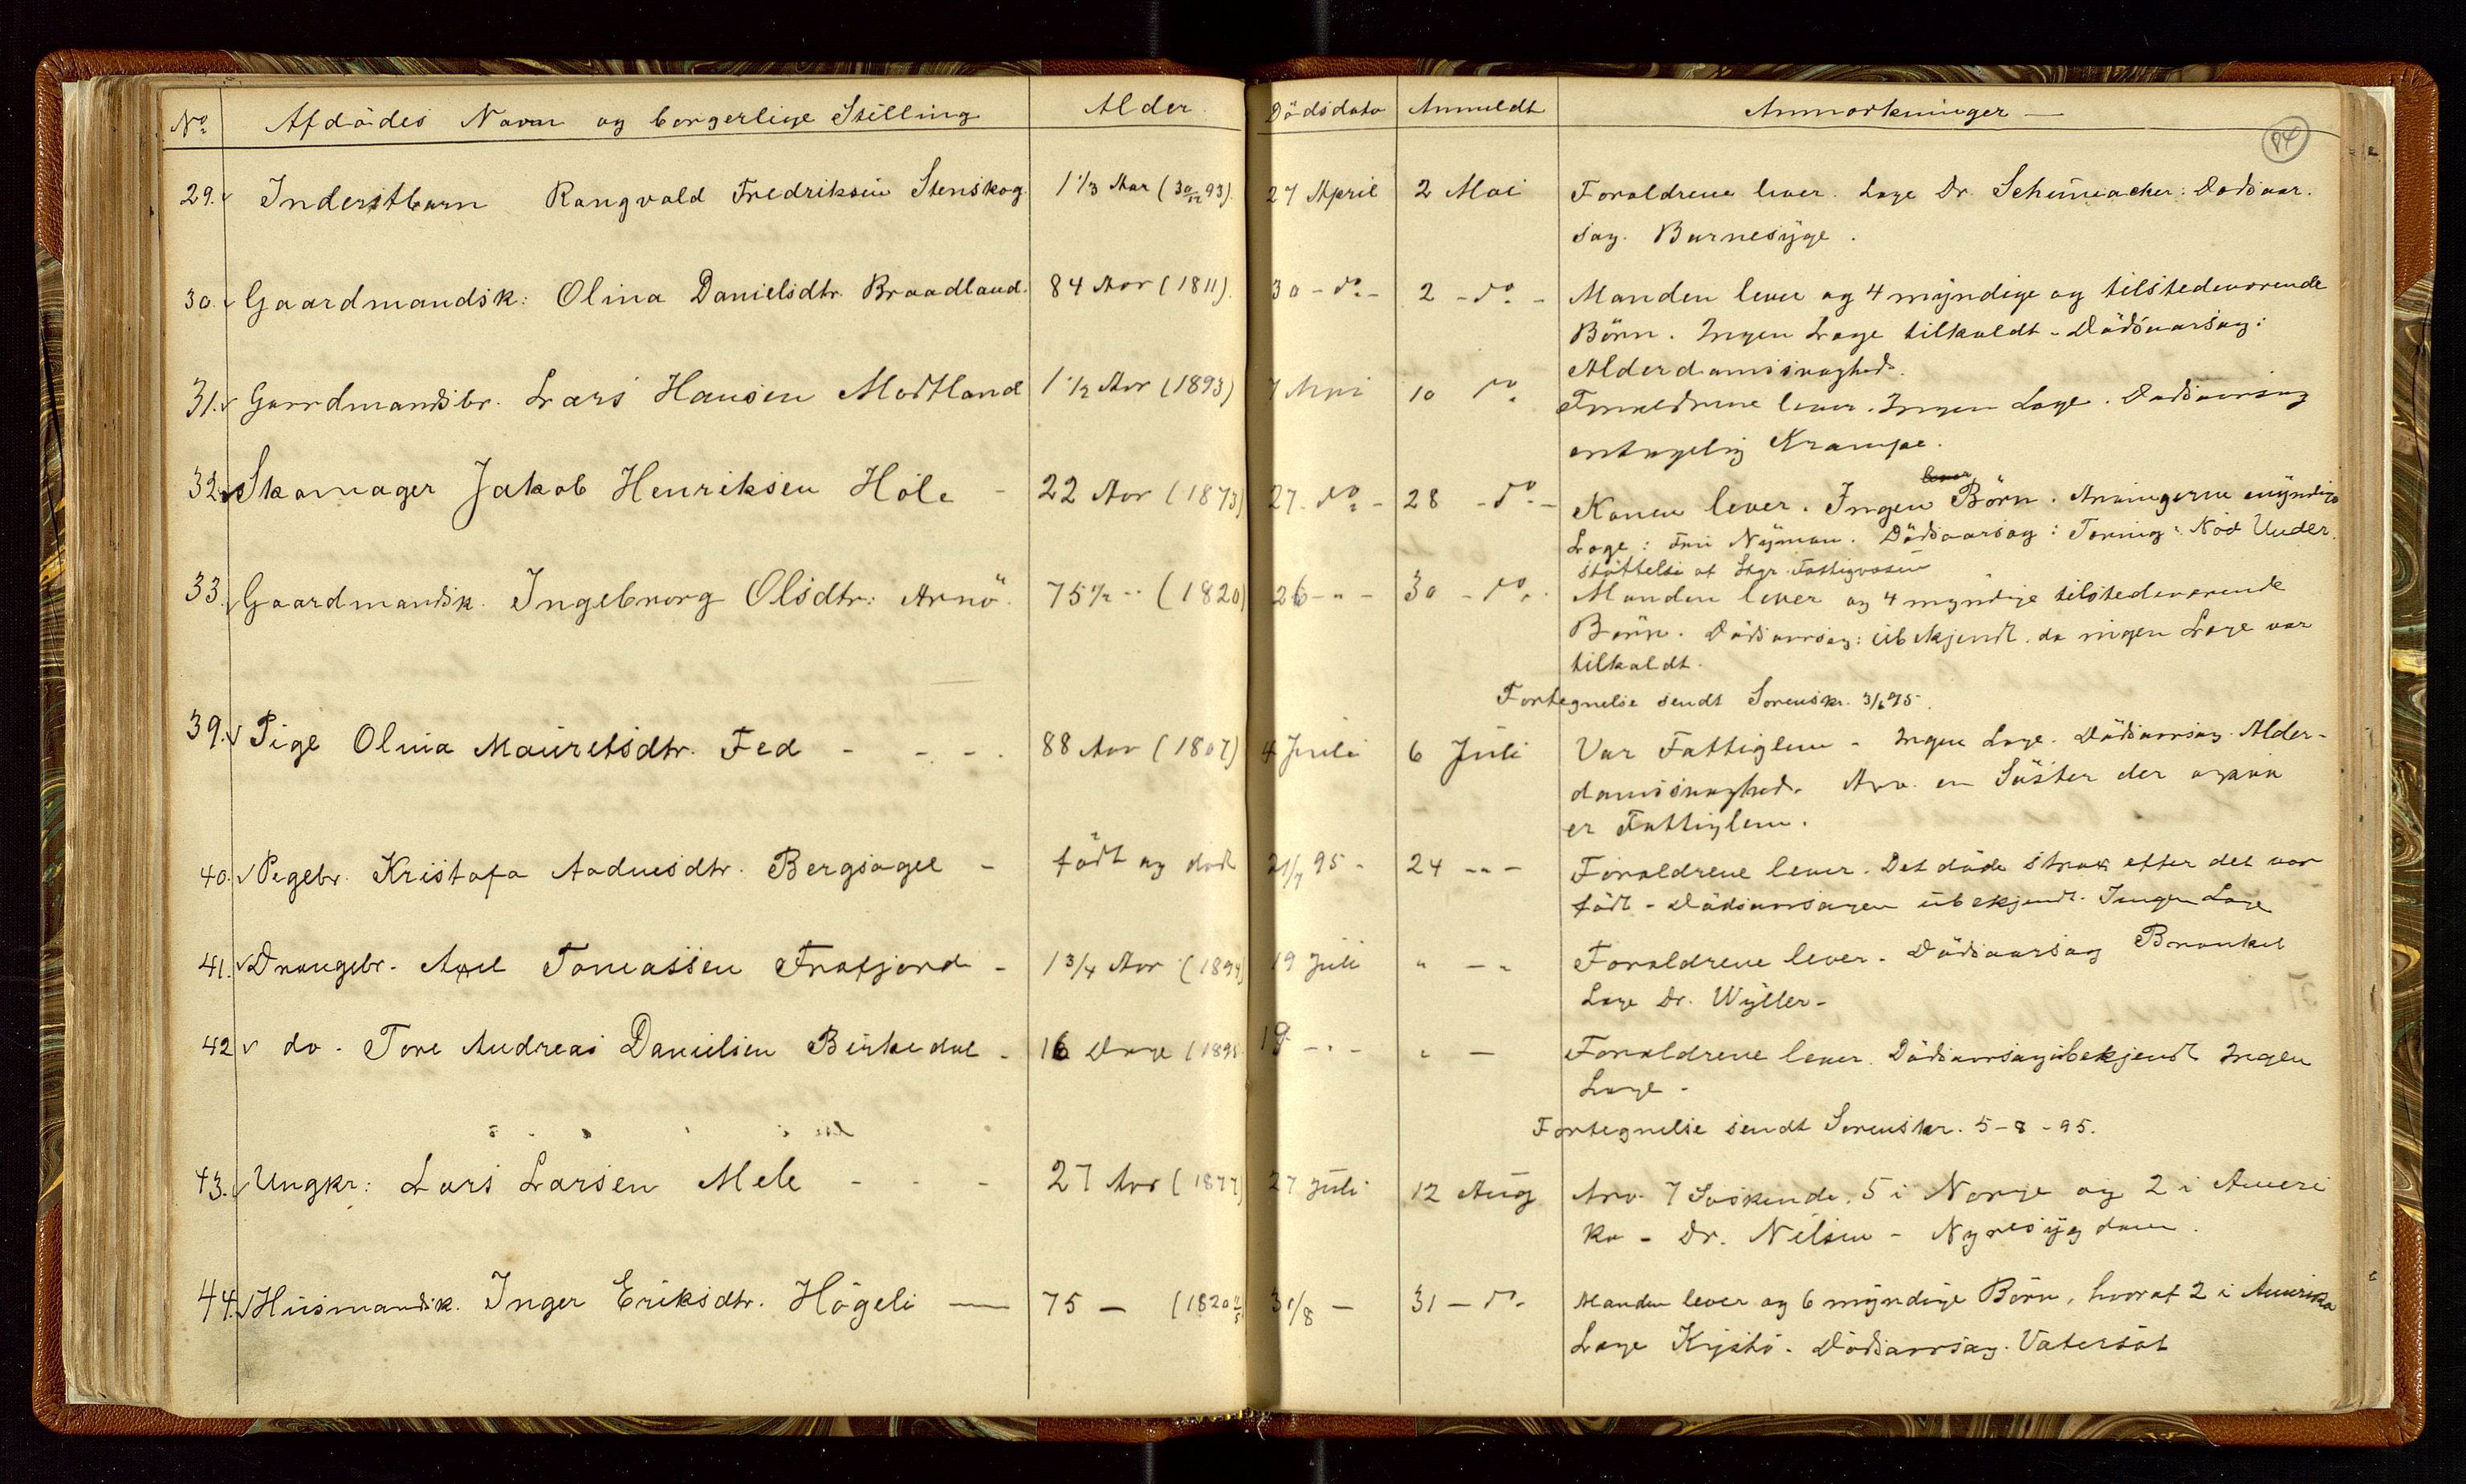 No Afdödes Navn og borgerlige Stilling Alder Dödsdato Anmeldt Anmærkninger
84
29. Inderstbarn Rangvald Fredriksen Stenskog 1 1/3 Aar (30/12 93). 27 April 2 Mai Forældrene lever. Læge Dr. Schumacher: Dødsaar-
sag. Barnesyge.
30. Gaardmandsk: Olina Danielsdtr. Braadland. 84 Aar (1811). 30 - do - 2 - do - Manden lever og 4 myndige og tilstedeværende
Börn. Ingen Læge tilkaldt - Dödsaarsag:
Alderdomssvaghed.
31. Gaardmandsbr. Lars Hansen Modtland 1 1/2 Aar (1893) 7 Mai 10 do Forældrene lever. Ingen Læge. Dødsaarsag
antagelig Krampe.
32. Skomager Jakob Henriksen Höle - 22 Aar (1873) 27 - do - 28 - do - Konen lever. Ingen Börn. Arvingerne myndige
Læge: Nyman. Dödsaarsag: Tæring. Nöd Under-
støttelse af Fattigvæsen
33. Gaardmandsk. Ingeborg Olsdtr: Arnö. 75 1/2 " (1820) 26 - " - 30 - do. Manden lever og 4 myndige tilstedeværende
Börn. Dödsaarsag: übekjendt, da ingen Læge var
tilkaldt.
Fortegnelse sendt Sorenskr. 3/6 95.
39. Pige Olina Mauritsdtr. Fed - - - 88 Aar (1807) 4 Juli 6 Juli Var Fattiglem - Ingen Læge. Dödsaarsag. Alder-
domssvaghed. Arv. en Söster der ogsaa
er Fattiglem.
40. Pigebr. Kristofa Aadnesdtr. Bergsagel - født og död 21/7 95 - 24 - " - Forældrene lever. Det döde strax efter det var
födt - Dödsaarsagen übekjendt. Ingen Læge
41. Drengebr. Axel Tomassen Frafjord - 1 3/4 Aar (1894) 19 Juli " - " Forældrene lever. Dödsaarsag Bronkit
Læge Dr. Wyller -
42 do - Tore Andreas Danielsen Birkedal - 16 Dage (1895 19 - " - " - Forældrene lever. Dödsaarsag übekjendt Ingen
Læge -
Fortegnelse sendt Sorenskr. 5-8-95.
43. Ungkr: Lars Larsen Mele - - - 27 Aar (1877) 27 Juli 12 Aug Arv. 7 Söskende. 5 i Norge og 2 i Ameri
ka - Dr. Nilsen - Nyresygdom.
44. Husmandsk. Inger Eriksdtr. Högeli — 75 — (1820 31/8 - 31 - do - Manden lever og 6 myndige Börn, hvoraf 2 i Amerika
Læge Dödsaarsag. Vatersöt